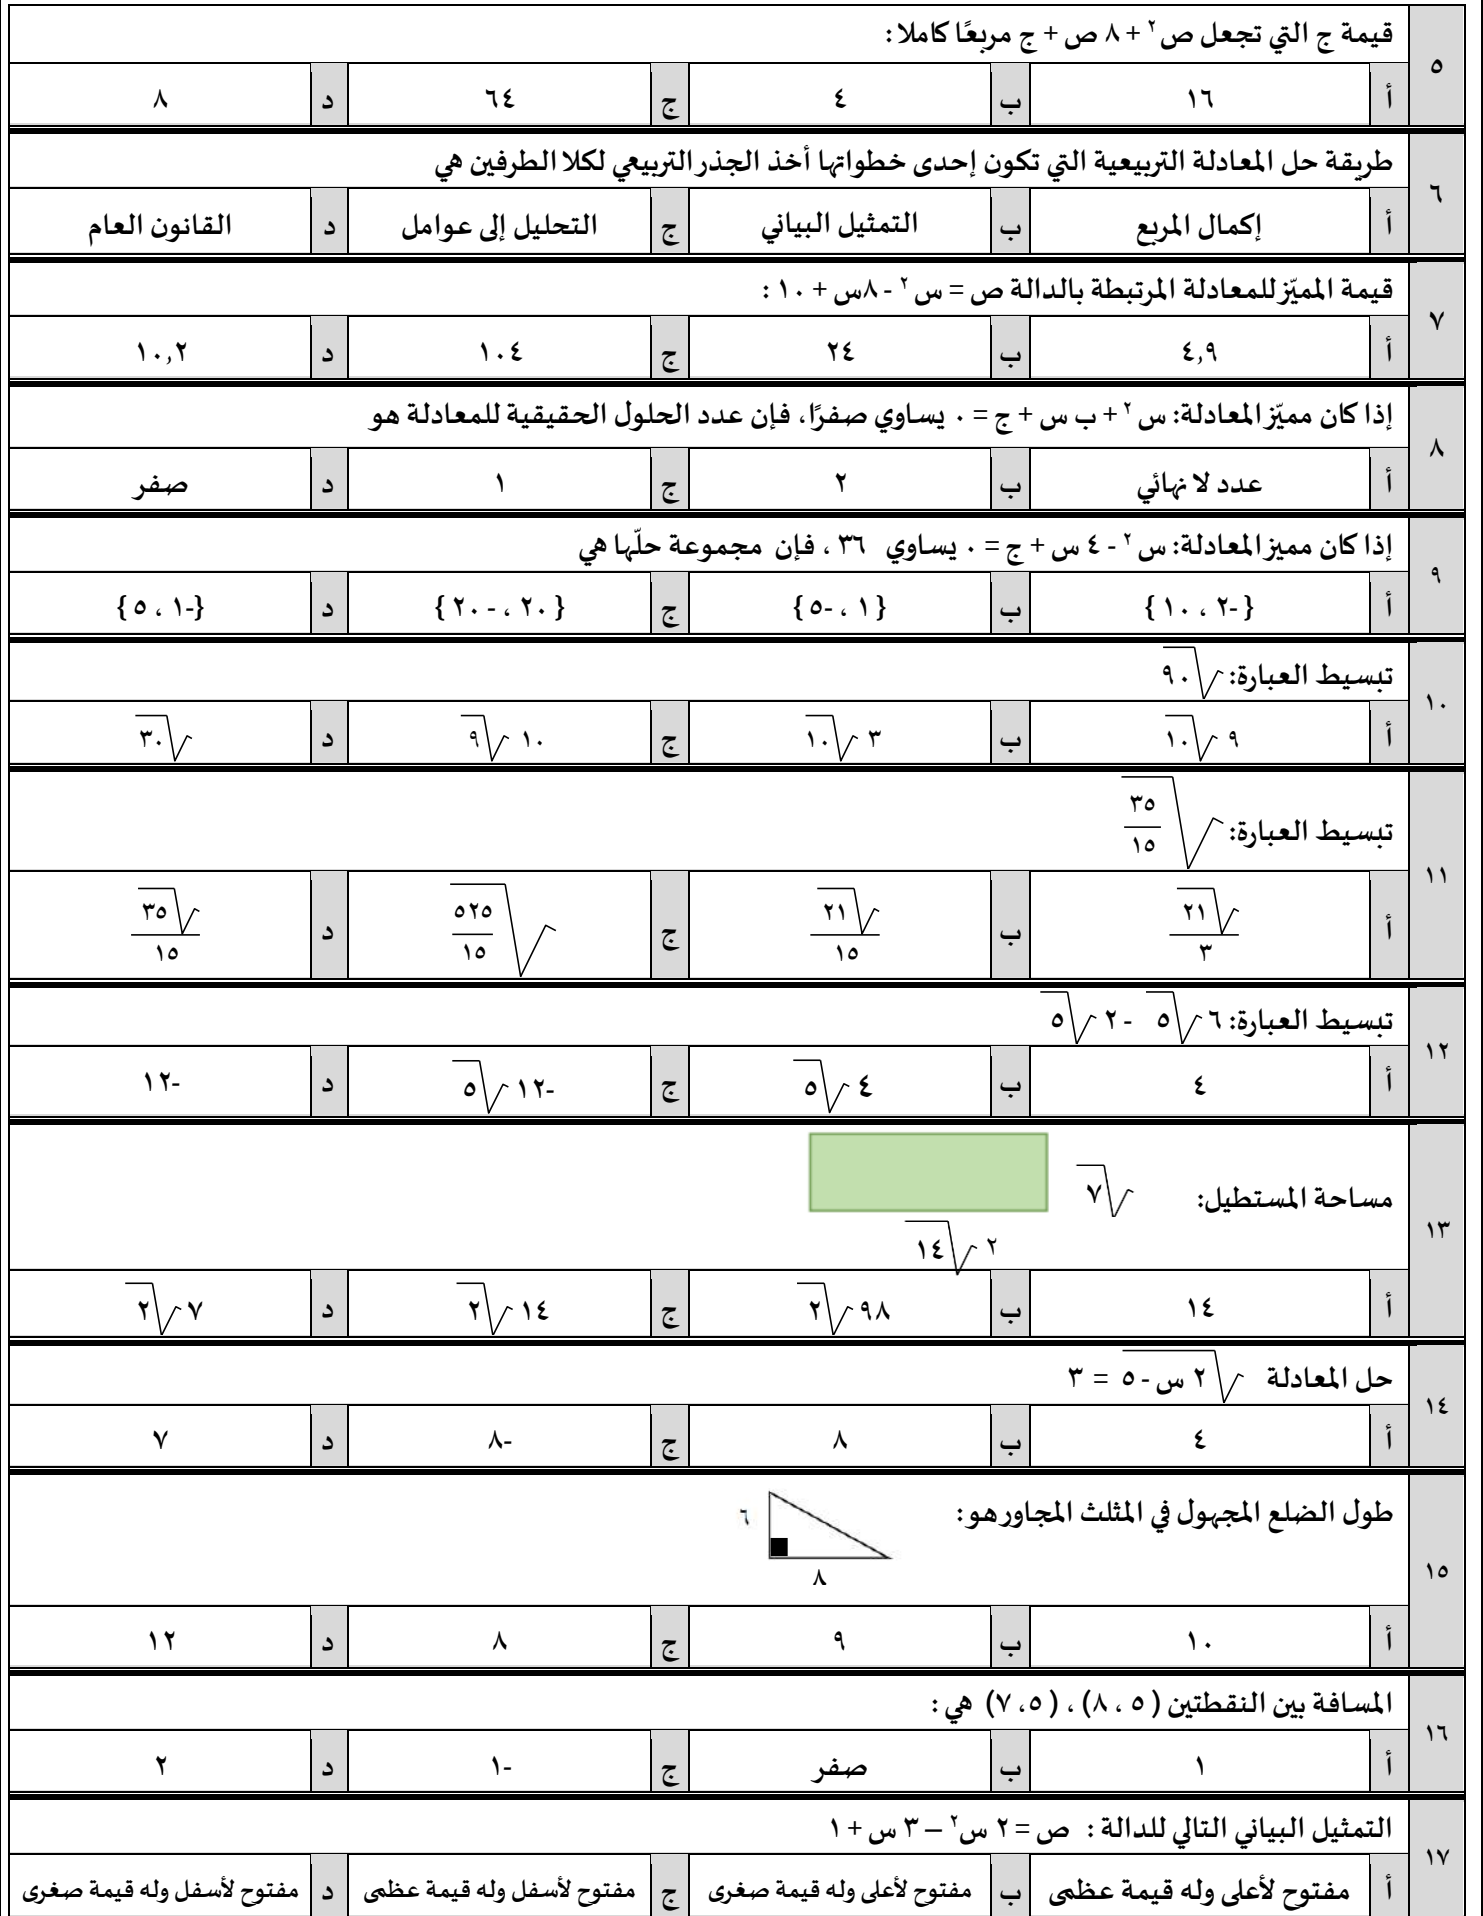 ٥ قيمة ج التي تجعل ص٢ + ٨ ص + ج مربعًا كاملا :
أ ١٦ ب ٤ ج ٦٤ د ٨
٦ طريقة حل المعادلة التربيعية التي تكون إحدى خطواتها أخذ الجذر التربيعي لكلا الطرفين هي
أ إكمال المربع ب التمثيل البياني ج التحليل إلى عوامل د القانون العام
٧ قيمة المميّز للمعادلة المرتبطة بالدالة ص = س٢ - ٨س + ١٠ :
أ ٤,٩ ب ٢٤ ج ١٠٤ د ١٠,٢
٨ إذا كان مميّز المعادلة: س٢ + ب س + ج = ٠ يساوي صفرًا، فإن عدد الحلول الحقيقية للمعادلة هو
أ عدد لا نهائي ب ٢ ج ١ د صفر
٩ إذا كان مميز المعادلة: س٢ - ٤ س + ج = ٠ يساوي ٣٦ ، فإن مجموعة حلّها هي
أ {-٢ ، ١٠ } ب { ١ ، -٥ } ج { ٢٠ ، - ٢٠ } د {-١ ، ٥ }
١٠ تبسيط العبارة: √٩٠
أ ٩ √١٠ ب ٣ √١٠ ج ١٠ √٩ د √٣٠
١١ تبسيط العبارة: √(٣٥/١٥)
أ √٢١/٣ ب √٢١/١٥ ج √(٥٢٥/١٥) د √٣٥/١٥
١٢ تبسيط العبارة: ٦ √٥ - ٢ √٥
أ ٤ ب ٤ √٥ ج -١٢ √٥ د -١٢
١٣ مساحة المستطيل: √٧
٢ √١٤
أ ١٤ ب ٩٨ √٢ ج ١٤ √٢ د ٧ √٢
١٤ حل المعادلة √(٢ س - ٥) = ٣
أ ٤ ب ٨ ج -٨ د ٧
١٥ طول الضلع المجهول في المثلث المجاور هو :
٦
٨
أ ١٠ ب ٩ ج ٨ د ١٢
١٦ المسافة بين النقطتين ( ٥ ، ٨) ، ( ٥، ٧) هي :
أ ١ ب صفر ج -١ د ٢
١٧ التمثيل البياني التالي للدالة : ص = ٢ س٢ – ٣ س + ١
أ مفتوح لأعلى وله قيمة عظمى ب مفتوح لأعلى وله قيمة صغرى ج مفتوح لأسفل وله قيمة عظمى د مفتوح لأسفل وله قيمة صغرى